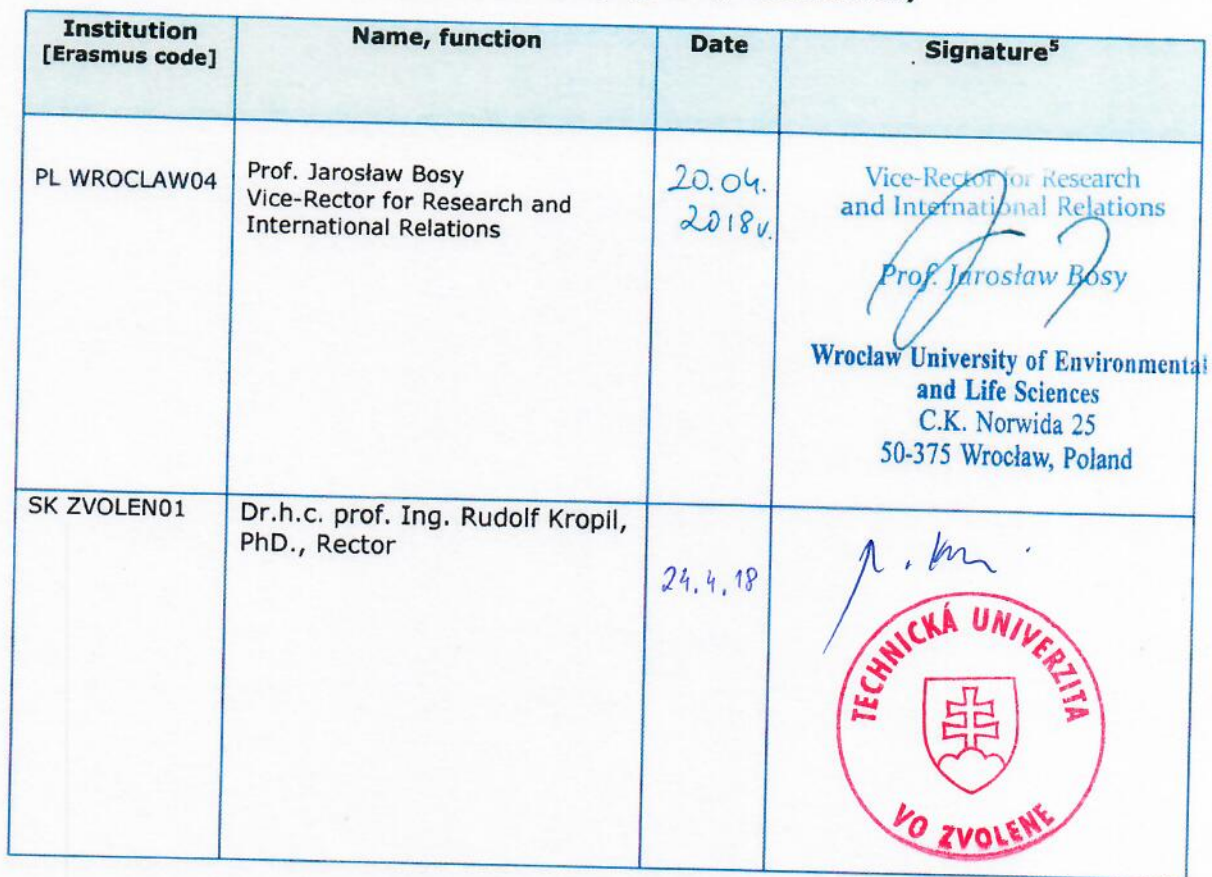 Institution
[Erasmus code]
Name, function
Date
Signature⁵
PL WROCLAW04
Prof. Jarosław Bosy
Vice-Rector for Research and
International Relations
20.04.
2018r.
Vice-Rector for Research
and International Relations
Prof. Jarosław Bosy
Wroclaw University of Environmental
and Life Sciences
C.K. Norwida 25
50-375 Wrocław, Poland
SK ZVOLEN01
Dr.h.c. prof. Ing. Rudolf Kropil,
PhD., Rector
24.4.18
TECHNICKÁ UNIVERZITA
VO ZVOLENE